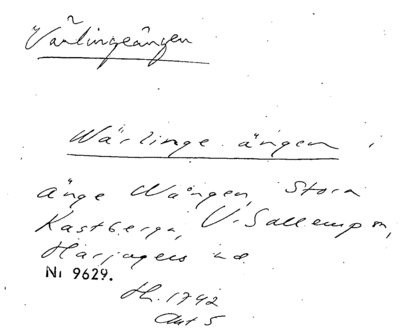 Värlingeängen
Wärlinge ängen i
änge Wången, Stora
Kastberga, V. Sallerup sn,
Harjagers hd
Ni 9629.
Ht. 1742
Akt 5